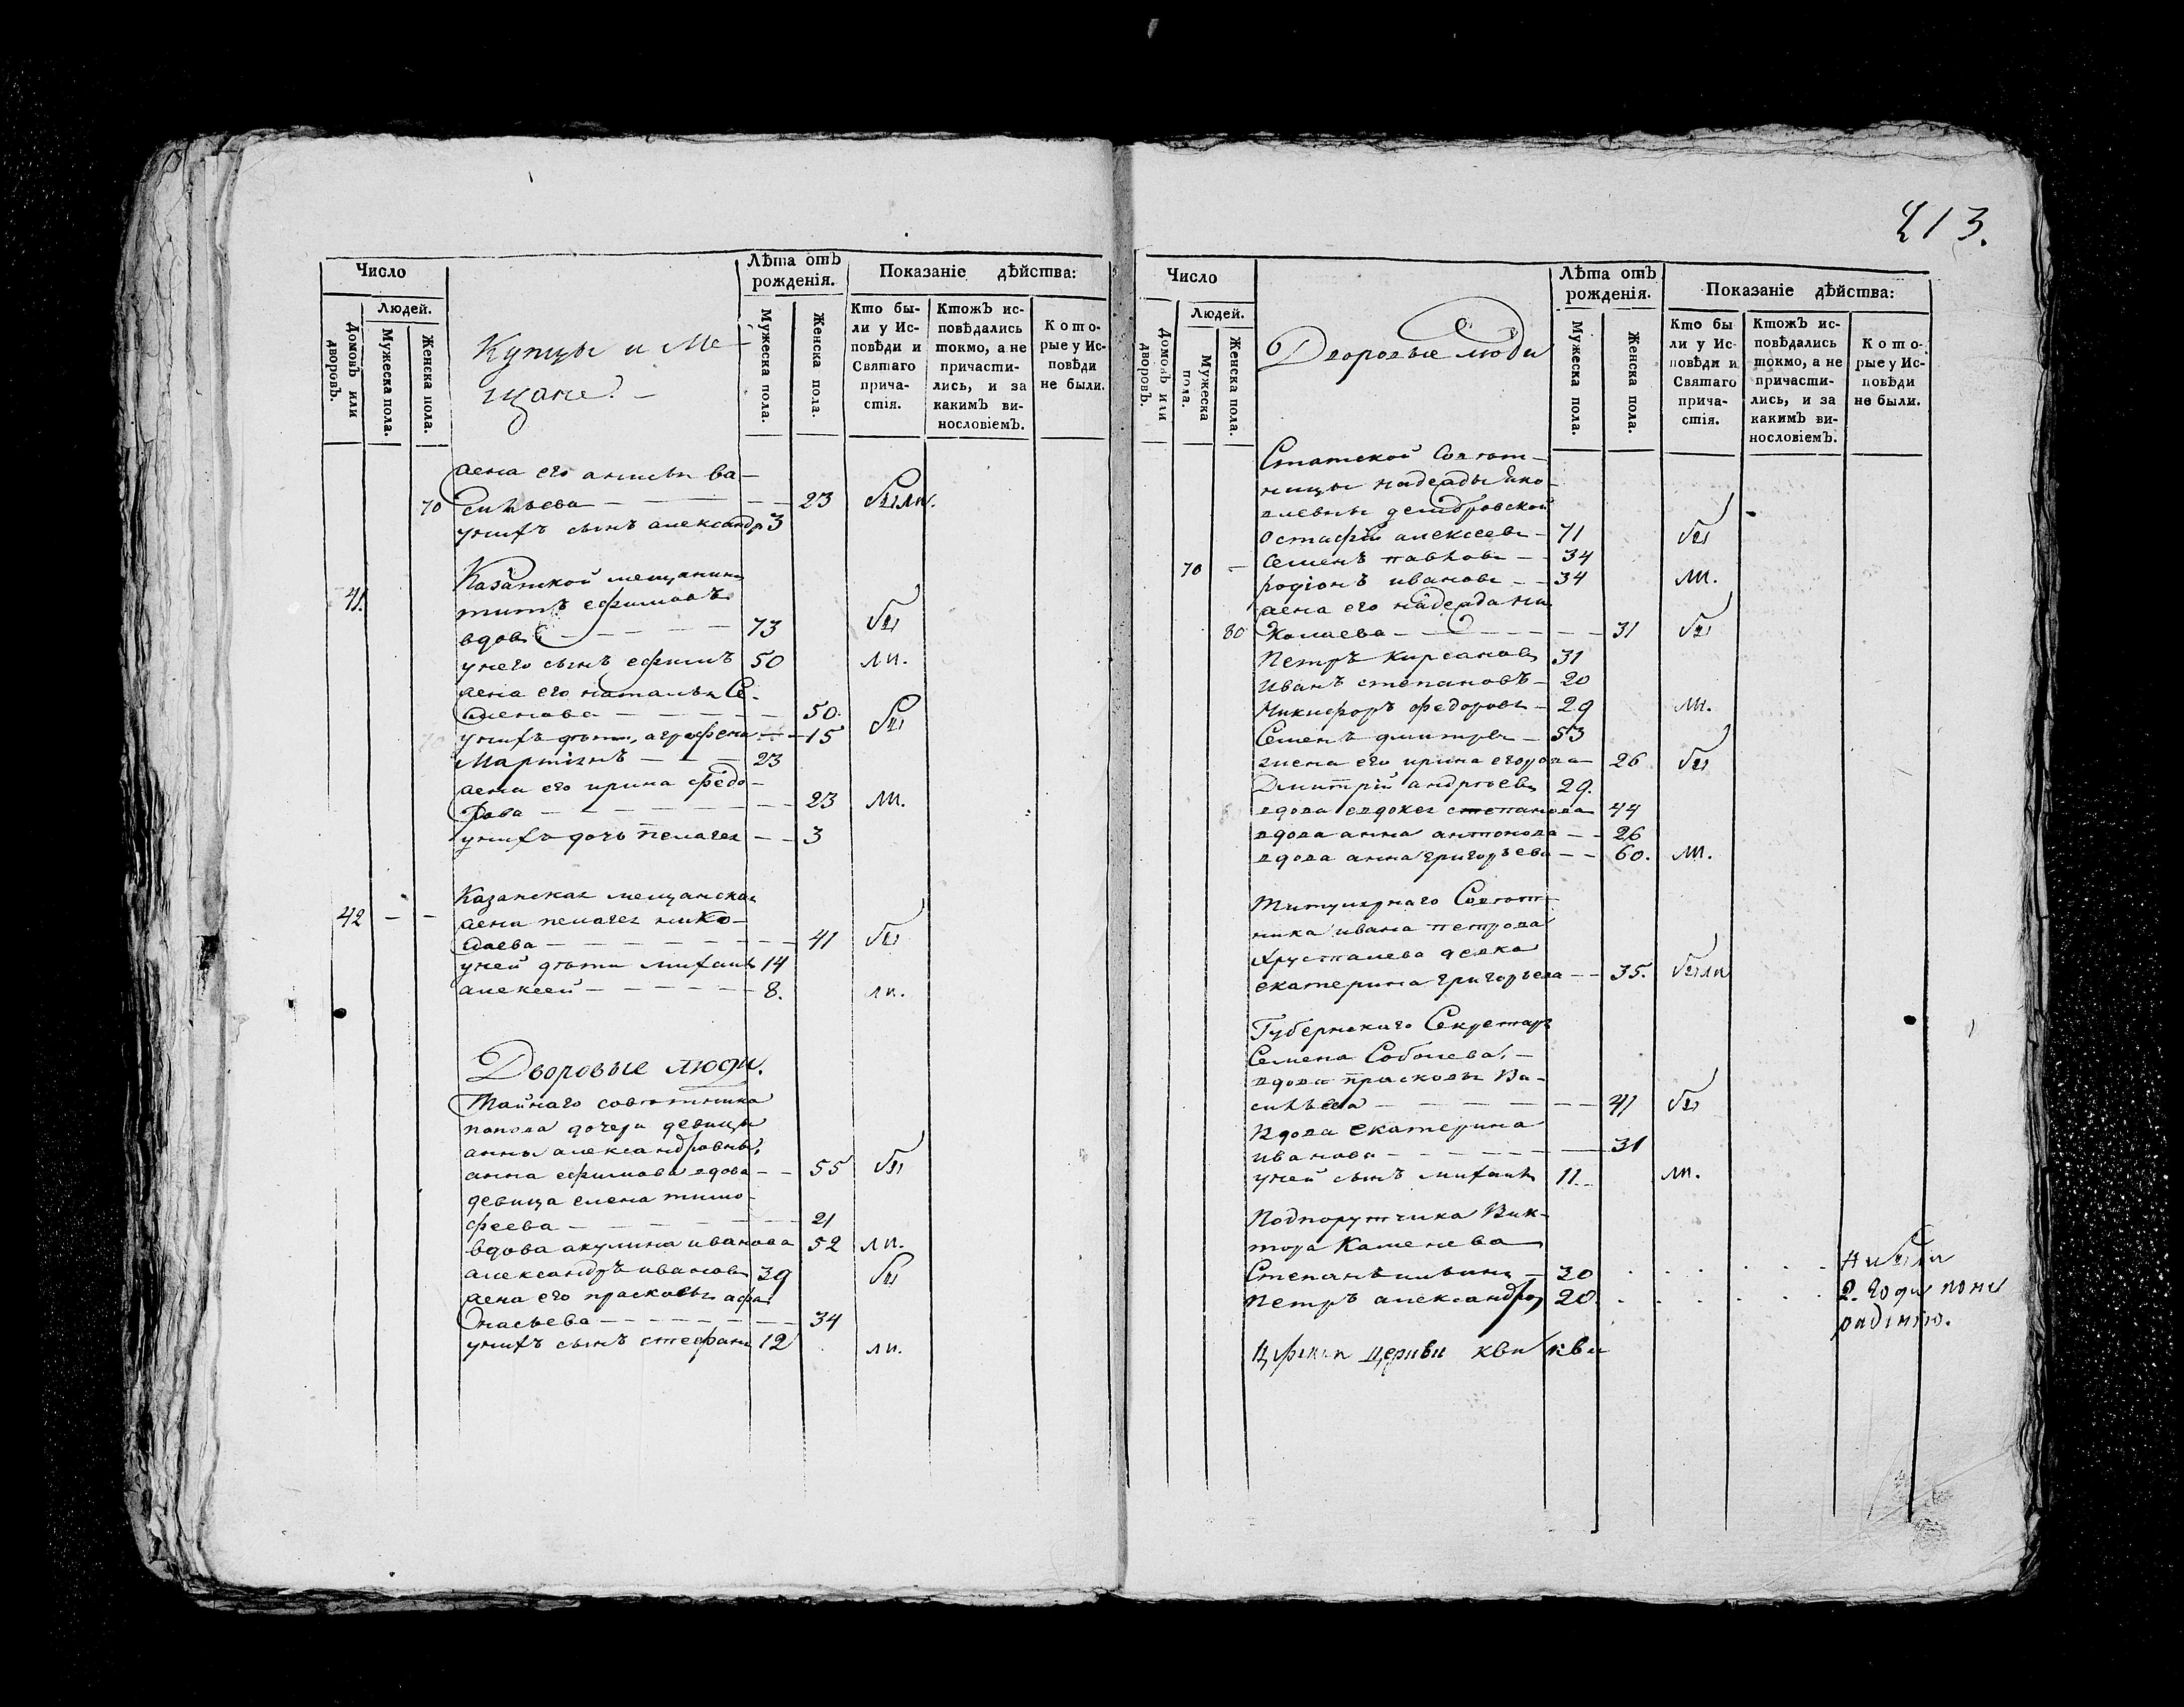 413.
Число
Людей.
Домовъ или дворовъ.
Мужеска пола.
Женска пола.
Купцы и Ме
щане.
Лѣта отъ рожденія.
Мужеска пола.
Женска пола.
Показаніе дѣйства:
Кто бы-
ли у Ис-
повѣди и
Святаго
прича-
стія.
Ктожъ ис-
повѣдались
токмо, а не
причасти-
лись, и за
какимъ ви-
нословіемъ.
Кото-
рые у Ис-
повѣди
не были.
жена его анисья ва-
70 сильева 23 были.
унихъ сынъ александръ 3
41. Казанской мещанинъ
титъ ефимовъ
вдовъ 73 бы
унего сынъ ефимъ 50 ли.
жена его наталья Се-
менова 50. бы
унихъ дѣти, аграфена 15
Мартинъ 23
жена его ирина федо-
рова 23 ли.
унихъ дочь пелагея 3
Казанская мещанская
42 жена пелагея нико-
лаева 41 бы
уней дѣти михаилъ 14
алексей 8. ли.
Дворовые люди.
Тайнаго советника
попова дочери девицы
анны александровны,
анна ефимова вдова 55 бы
девица елена тимо-
феева 21
вдова акулина иванова 52 ли.
александръ ивановъ 39 бы
жена его прасковья афа
насьева 34
унихъ сынъ стефанъ 12 ли.
Число
Людей.
Домовъ или дворовъ.
Мужеска пола.
Женска пола.
Дворовые люди
Лѣта отъ рожденія.
Мужеска пола.
Женска пола.
Показаніе дѣйства:
Кто бы
ли у Ис-
повѣди и
Святаго
прича-
стія.
Ктожъ ис-
повѣдались
токмо, а не
причасти-
лись, и за
какимъ ви-
нословіемъ.
Кото-
рые у Ис-
повѣди
не были.
Статской Совѣт-
ницы надежды
остафій алексеевъ 71 бы
70 Семенъ павловъ 34
родіонъ ивановъ 34 ли.
жена его надежда ни
80 колаева 31 бы
Петръ кирсановъ 31
Иванъ степановъ 20
Никифоръ федоровъ 29 ли.
Семенъ дмитрев 53
жена его ирина егорова 26 бы
Дмитрій андреевъ 29.
вдова евдокея степанова 44
вдова анна антонова 26
вдова анна григорьева 60. ли.
Титулярнаго Совѣт-
ника ивана петрова
Хрусталева девка
екатерина григорьева 35. были
Губернскаго Секретаря
Семена Соболева,
вдова прасковья Ва-
сильева 41 бы
Вдова екатерина
иванова 31
уней сынъ михаилъ 11. ли.
Подпорутчика Вик-
тора Каменева
Степанъ ильинъ 30 не были
Петръ александров 20. 2. года поне
радѣнию.
церкви